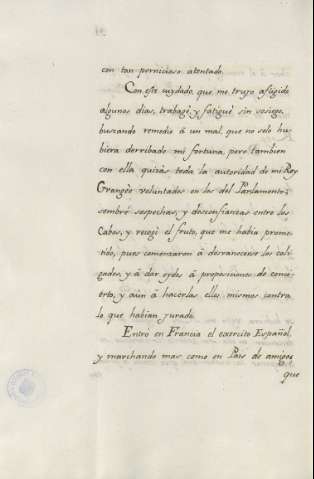 con tan pernicioso atentado.
Con este cuydado, que me trujo afligido
algunos dias, trabagè, y fatiguè sin sosiego,
buscando remedio à un mal, que no solo hu-
biera derribado mi fortuna, pero tambien
con ella quizàs toda la autoridad de mi Rey
Grangeè voluntades en los del Parlamento:
sembrè sospechas, y desconfianzas entre los
Cabos, y recogì el fruto, que me habia prome-
tido, pues comenzaron à desvanecerse los col
gados, y à dar oydos à proposiciones de conci
erto, y aùn à hacerlas ellos mismos contra
lo que habian jurado.
Entrò en Francia el exercito Español,
y marchando mas como en Pais de amigos
que